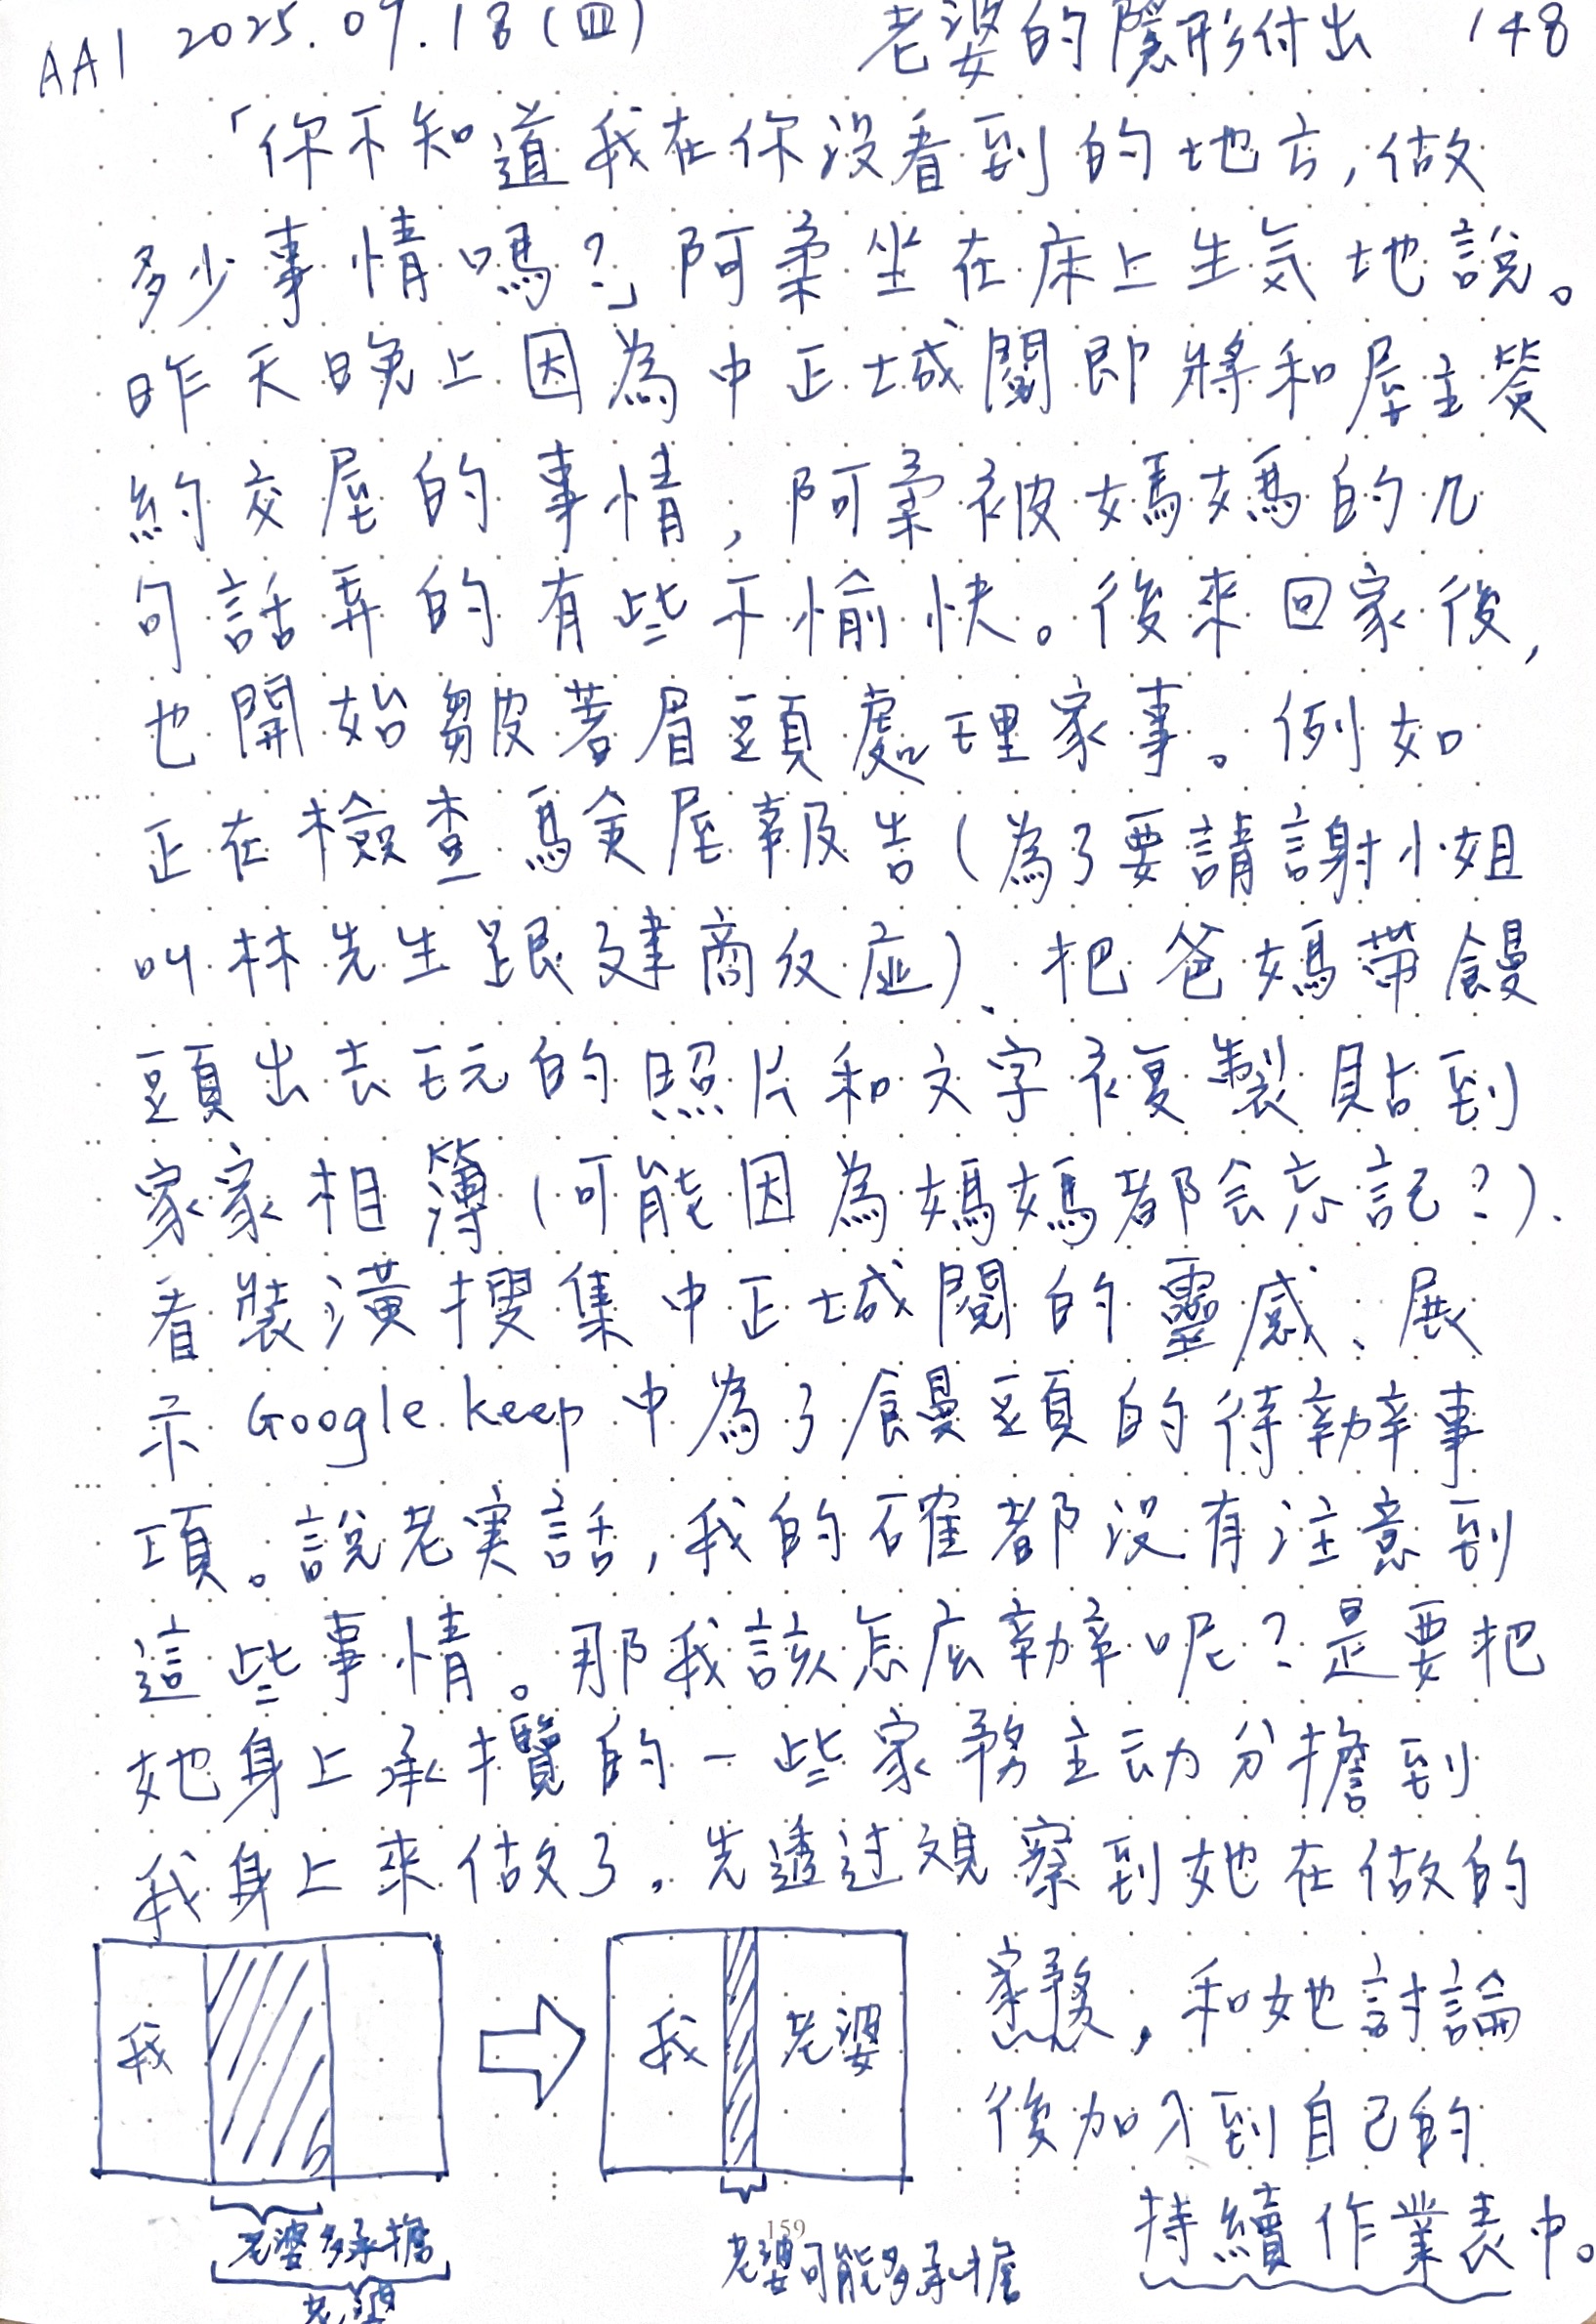 AA1 2025.09.18(四) 老婆的隱形付出 148
「你不知道我在你沒看到的地方,做
多少事情嗎?」阿柔坐在床上生気地說。
昨天晚上因為中正城閱即將和屋主簽
約交屋的事情,阿柔被媽媽的几
句話弄的有些不愉快。後來回家後,
也開始皺著眉頭處理家事。例如
正在檢查驗屋報告(為了要請謝小姐
叫林先生跟建商反应)、把爸媽帶饅
頭出去玩的照片和文字複製貼到
家家相簿(可能因為媽媽都会忘記?)、
看裝潢搜集中正城閱的靈感、展
示Google keep中為了饅頭的待辦事
項。說老実話,我的確都沒有注意到
這些事情。那我該怎広辦呢?是要把
她身上承攬的一些家務主动分擔到
我身上來做了。先透过観察到她在做的
家務,和她討論
後加入到自己的
持續作業表中。
我
我 老婆
老婆多承擔
老婆
老婆可能多承擔
159